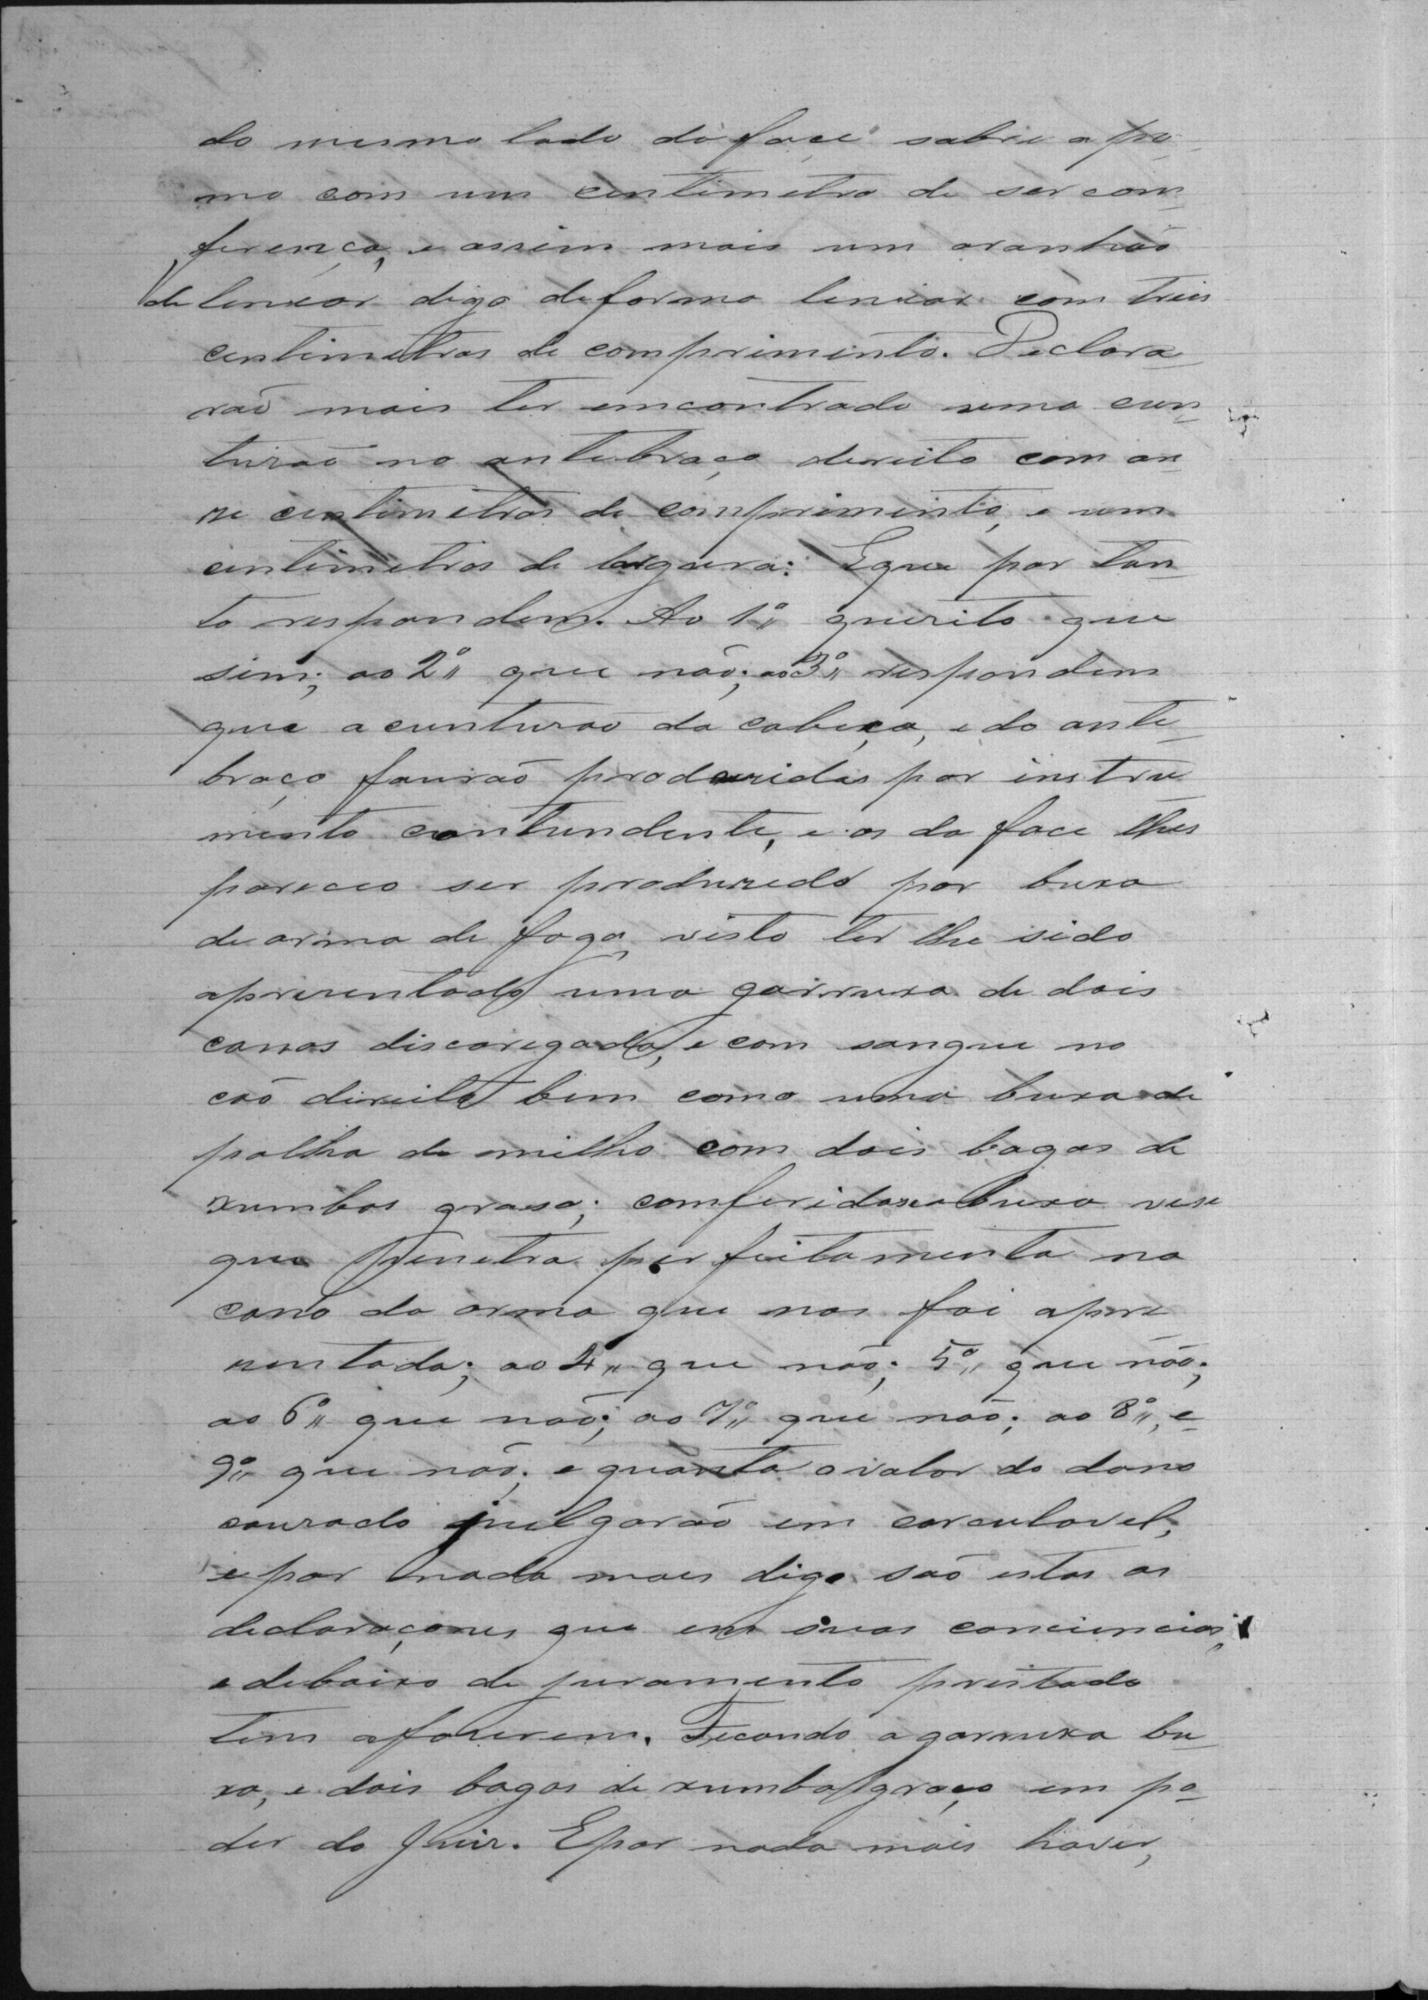 do mesmo lado da face sobre a po
mo com um centimetro de sercom
ferença, e assim mais um aranhão
de lenear digo de forma lenear com treis
centimetros de comprimento. Declara
rão mais ter emcontrado uma cun
turão no antebraço dereito com on
ze centimetros de comprimento, e um
centimetros de largura: E que por tan
to respondem. Ao 1º quezito que
sim; ao 2º que não; ao 3º respondem
que a cunturão da cabeça, e do ante
braço faurão produzidas por instru
mento contundente, e as da face lhes
pareceo ser produzido por buxa
de arma de fogo visto ter lhe sido
aprezentado uma garruxa de dois
canos discaregada, e com sangue no
cão direito bem como uma buxa de
palha de milho com dois bagos de
xumbos graso; comferidas a buxa vese
que penetra perfeitamenta no
cano da arma que nos foi apre
zentada; ao 4º que não; 5º que não;
ao 6º que não; ao 7º que não; ao 8º, e
9º que não; e quanto o valor do dano
cauzado julgarão em carculavel,
e por nada mais digo são estas as
declaraçones que em suas conciencias,
e debaixo de juramento prestado
tem a fazerem. Ficando a garruxa bu
xa, e dois bagos de xumbo graço em po
der do Juiz. E por nada mais haver,